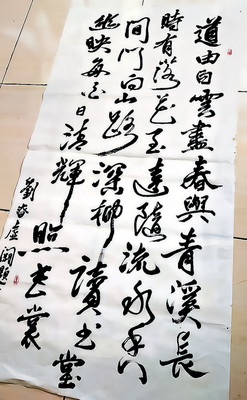 道由白雲盡春與青溪長
時有落花至遠隨流水香
閒門向山路深柳讀書堂
幽映每白日清輝照衣裳
劉眘虛闕題